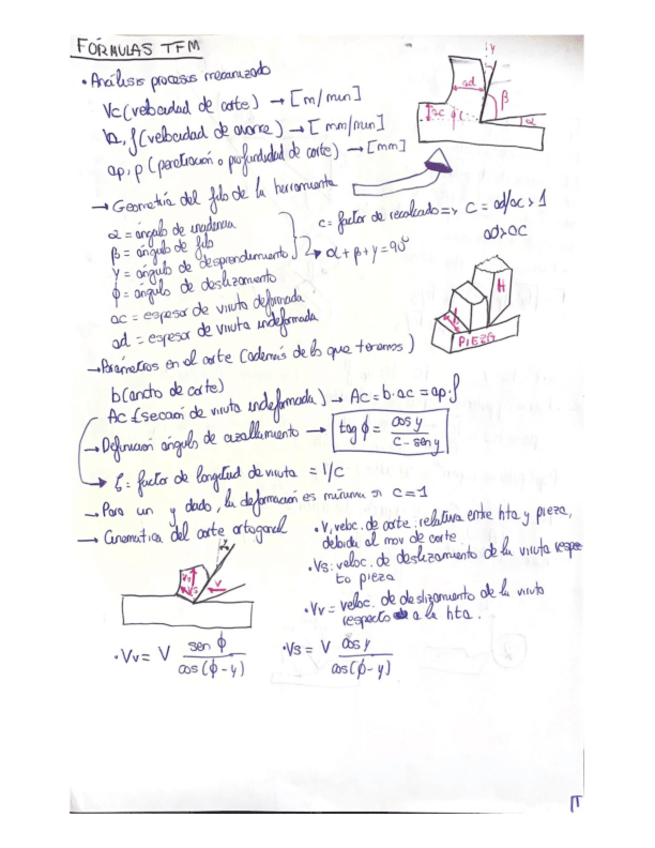 FÓRMULAS TFM
• Análisis procesos mecanizado
Vc (velocidad de corte) → [m/min]
f (velocidad de avance) → [mm/min]
ap, p (penetración o profundidad de corte) → [mm]
→ Geometría del filo de la herramienta
α = ángulo de incidencia
β = ángulo de filo
γ = ángulo de desprendimiento
α + β + γ = 90°
ϕ = ángulo de deslizamiento
ac = espesor de viruta deformada
ad = espesor de viruta indeformada
c = factor de recalcado => C = ad/ac > 1
ad > ac
→ Parámetros en el corte (además de lo que tenemos)
b (ancho de corte)
Ac (sección de viruta indeformada) → Ac = b·ac = ap·f
→ Definición ángulo de cizallamiento → tag ϕ = cos γ / C - sen γ
→ = factor de longitud de viruta = 1/C
→ Para un γ dado, la deformación es mínima si C = 1
→ Cinemática del corte ortogonal
• V, veloc. de corte: relativa entre hta y pieza,
debida al mov de corte.
• Vs: veloc. de deslizamiento de la viruta respec
to pieza
• Vv = veloc. de deslizamiento de la viruta
respecto a la hta.
• Vv = V sen ϕ / cos(ϕ - γ)
• Vs = V cos γ / cos(ϕ - γ)
γ
ad
β
ac
ϕ
α
H
PIEZA
γ
Vv
Vs
V